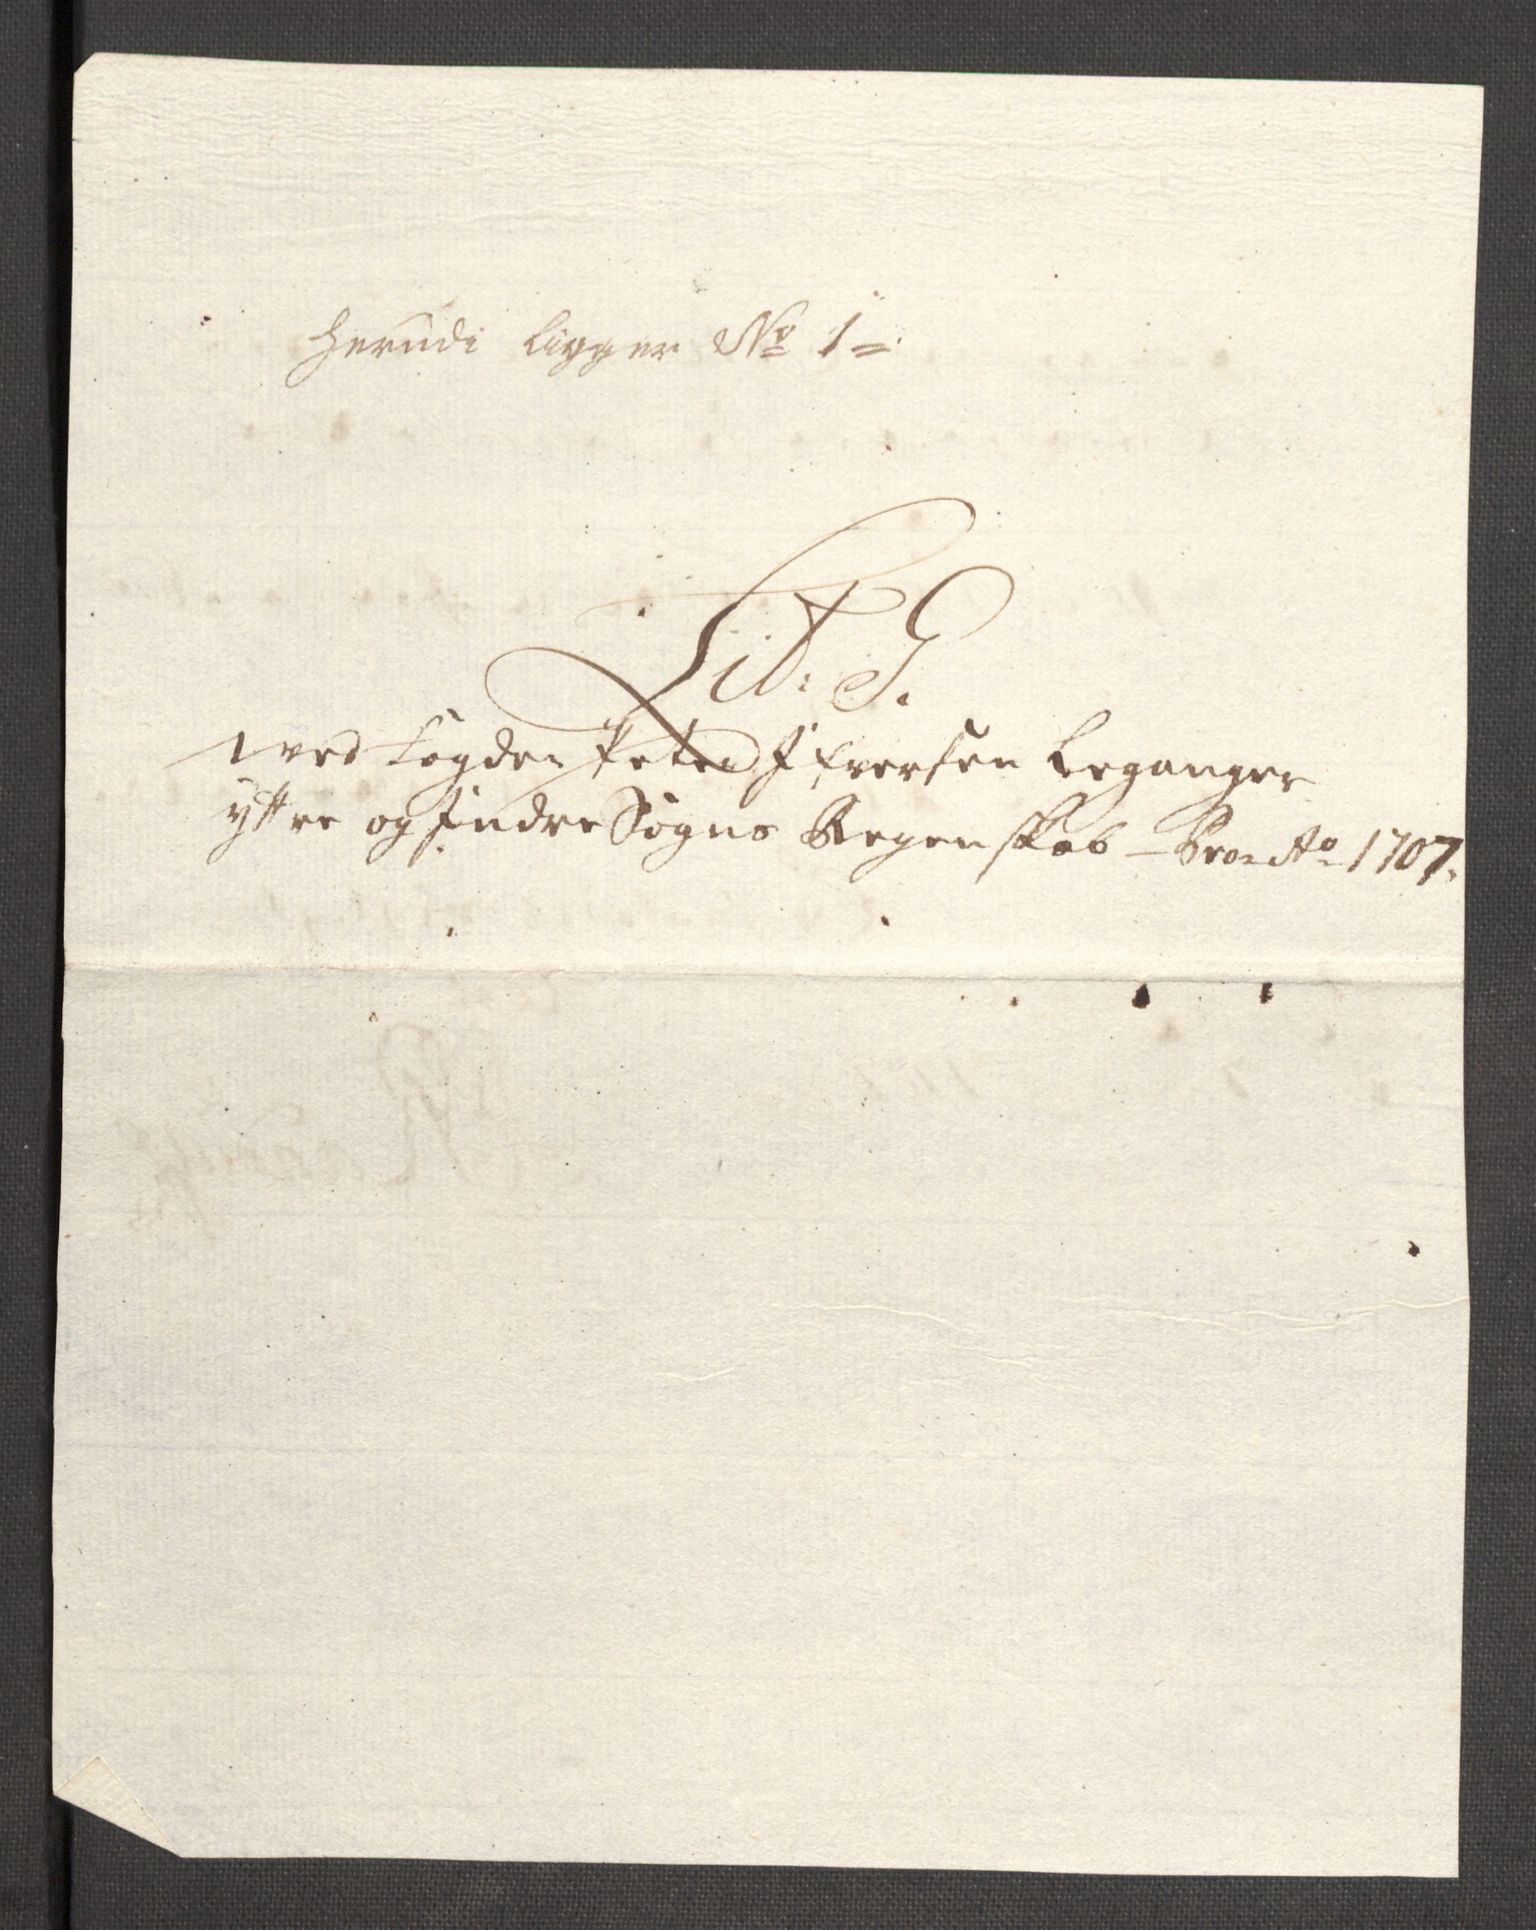 Herudi ligger No 1 =
Lit: G.
Ved Fogden Peter Ifversen Leganger
yttre og Jndre Sogns Regenskab – Pro Ao 1707.